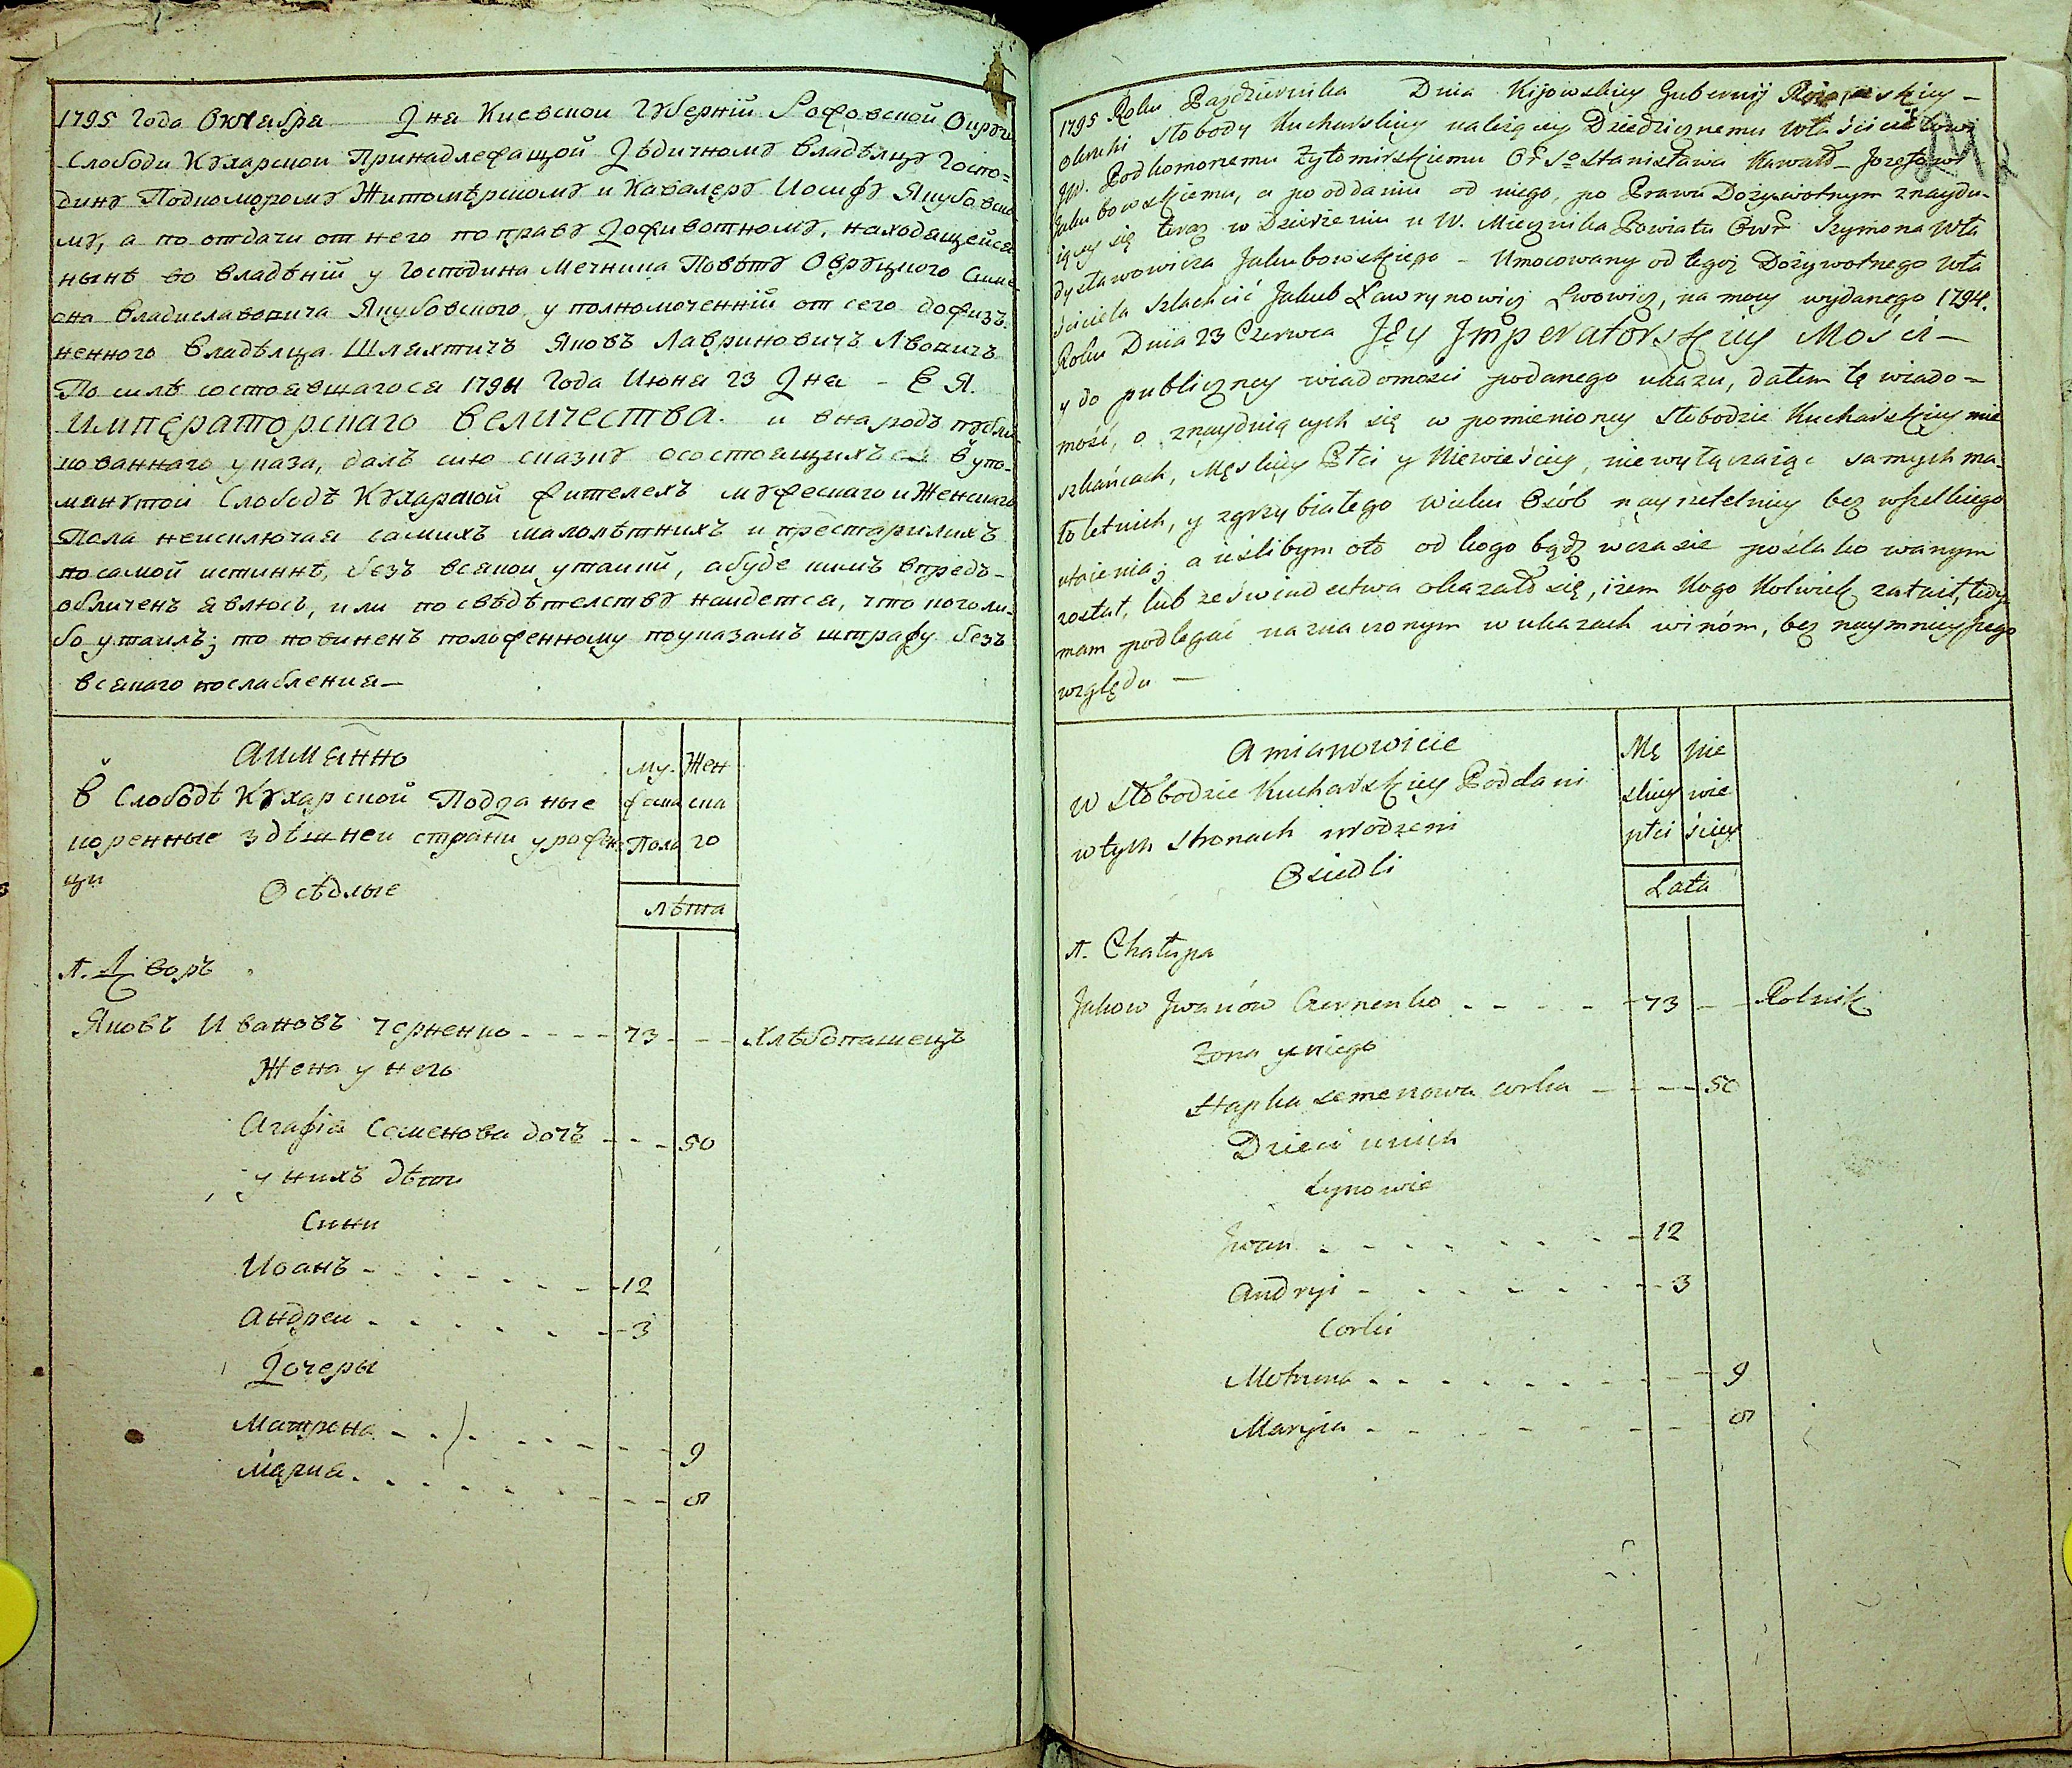 1795 Года Октабра Дна Киевскои Губернїи Рожовской Округи
Слободи Кухарскои Принадлежащой Дѣдичному Владѣлцу Госпо=
дину Подкоморому Житомѣрскому и Кавалеру Иосифу Якубовско
му, а по отдачи от него по праву Доживотному, находящейся
нынѣ во владѣнїи у Господина Мечника Повѣту Овруцкого Симе-
она Владиславовича Якубовского, уполномоченнїй от сего дожиз-
ненного Владѣлца Шляхтичъ Яковъ Лавриновичъ Лвовичъ
По силѣ состоявшагося 1794 Года Июня 23 Дна – Е Я.
Императорскаго Величества. и внародъ публи-
кованнаго указа, далъ сию сказку о состоящихъ в упо-
мянутой Слободѣ Кухарской жителехъ мужескаго и Женскаго
Пола неисключая самихъ малолѣтнихъ и престарилихъ
по самой истиннѣ, безъ всякои утаики, а буде кимъ впредь-
обличенъ явлюсь, или по свѣдѣтелству наидется, что кого ли-
бо утаилъ; то повиненъ положенному по указамъ штрафу безъ
всякаго послабления—
Аимянно
в Слободѣ Кухарской Подданые
коренные здѣшнеи страни урожен-
ци
Осѣдлые
му- Жен
жеска ска
Пола го
лѣта
1. Дворъ
Яковъ Ивановъ Черненко - - - - 73 - - - Хлѣбопашецъ
Жена у него
Агафїа Семенова дочъ - - - 50
у нихъ дѣти
Сини
Иоанъ - - - - - - 12
Андреи - - - - - - 3
Дочеры
Матрона - - - - - - - 9
Мариа - - - - - - - 5
1795 Roku Pazdziernika Dnia Kijowskiey Gubernij
Okruki Słobody Kucharskiey należącey Dziedzicznemu Właścicielowi
JW. Podkomoremu Żytomirskiemu Or So Stanisława Kawalr Jozefowi
Jakubowskiemu, a po oddaniu od niego, po Prawu Dożywotnym znaydu-
iącey się teraz w Dzierżeniu u W. Miecznika Powiatu Owr Szymona Wła
dysławowicza Jakubowskiego - Umocowany od tegoż Dożywotnego Wła
ściciela Szlachcić Jakub Ławrynowicz Lwowicz, na mocy wydanego 1794.
Roku Dnia 23 Czerwca JEy Jmperatorskiey Mości —
y do publiczney wiadomości podanego ukazu, dałem tę wiado=
mość, o znayduiących się w pomienioney Słobodzie Kucharskiey mie
szkańcach, Męskiey Płci y Niewieściey, niewyłączaiąc samych ma-
łoletnich, y zgrzybiałego wieku Osób nayrzetelniey bez wszelkiego
utaienia; a ieślibym oto od kogo bądź wczasie poszlakowanym
został, lub ze świadectwa okazało się, iżem Kogo Kolwiek zataił, tedy
mam podlegać naznaczonym w ukazach winóm, bez naymnieyszego
względu —
Amianowicie
W Słobodzie Kucharskiey Poddani
w tych stronach urodzeni
Osiedli
Mę Nie
skiey wie
płci ściey
Lata
1. Chałupa
Jakow Jwanów Czernenko - - - - - 73 - - Rolnik
Żona u niego
Hapka Semenowa corka - - - - 50
Dzieci u nich
Synowie
Jwan - - - - - - - 12
Andryi - - - - - - - 3
Corki
Motruna - - - - - - - - 9
Maryia - - - - - - - 5